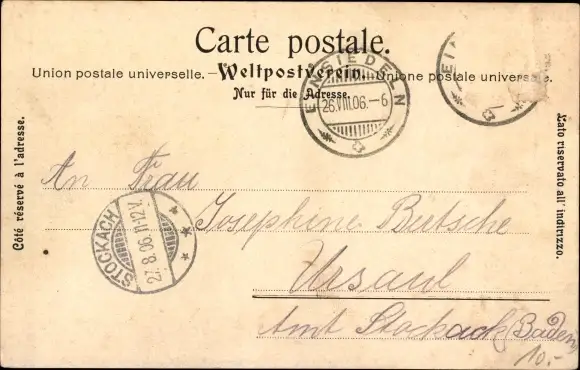 Carte postale.
Union postale universelle. – Weltpostverein. – Unione postale universale.
Nur für die Adresse.
Côté réservé à l'adresse.
Lato riservato all' indirizzo.
EINSIEDELN
26.VIII.06.–6
EI
An Frau
Josephine Butsche
Ursaul
Amt Stockach (Baden)
STOCKACH
27.8.06.11-12V.
10.-